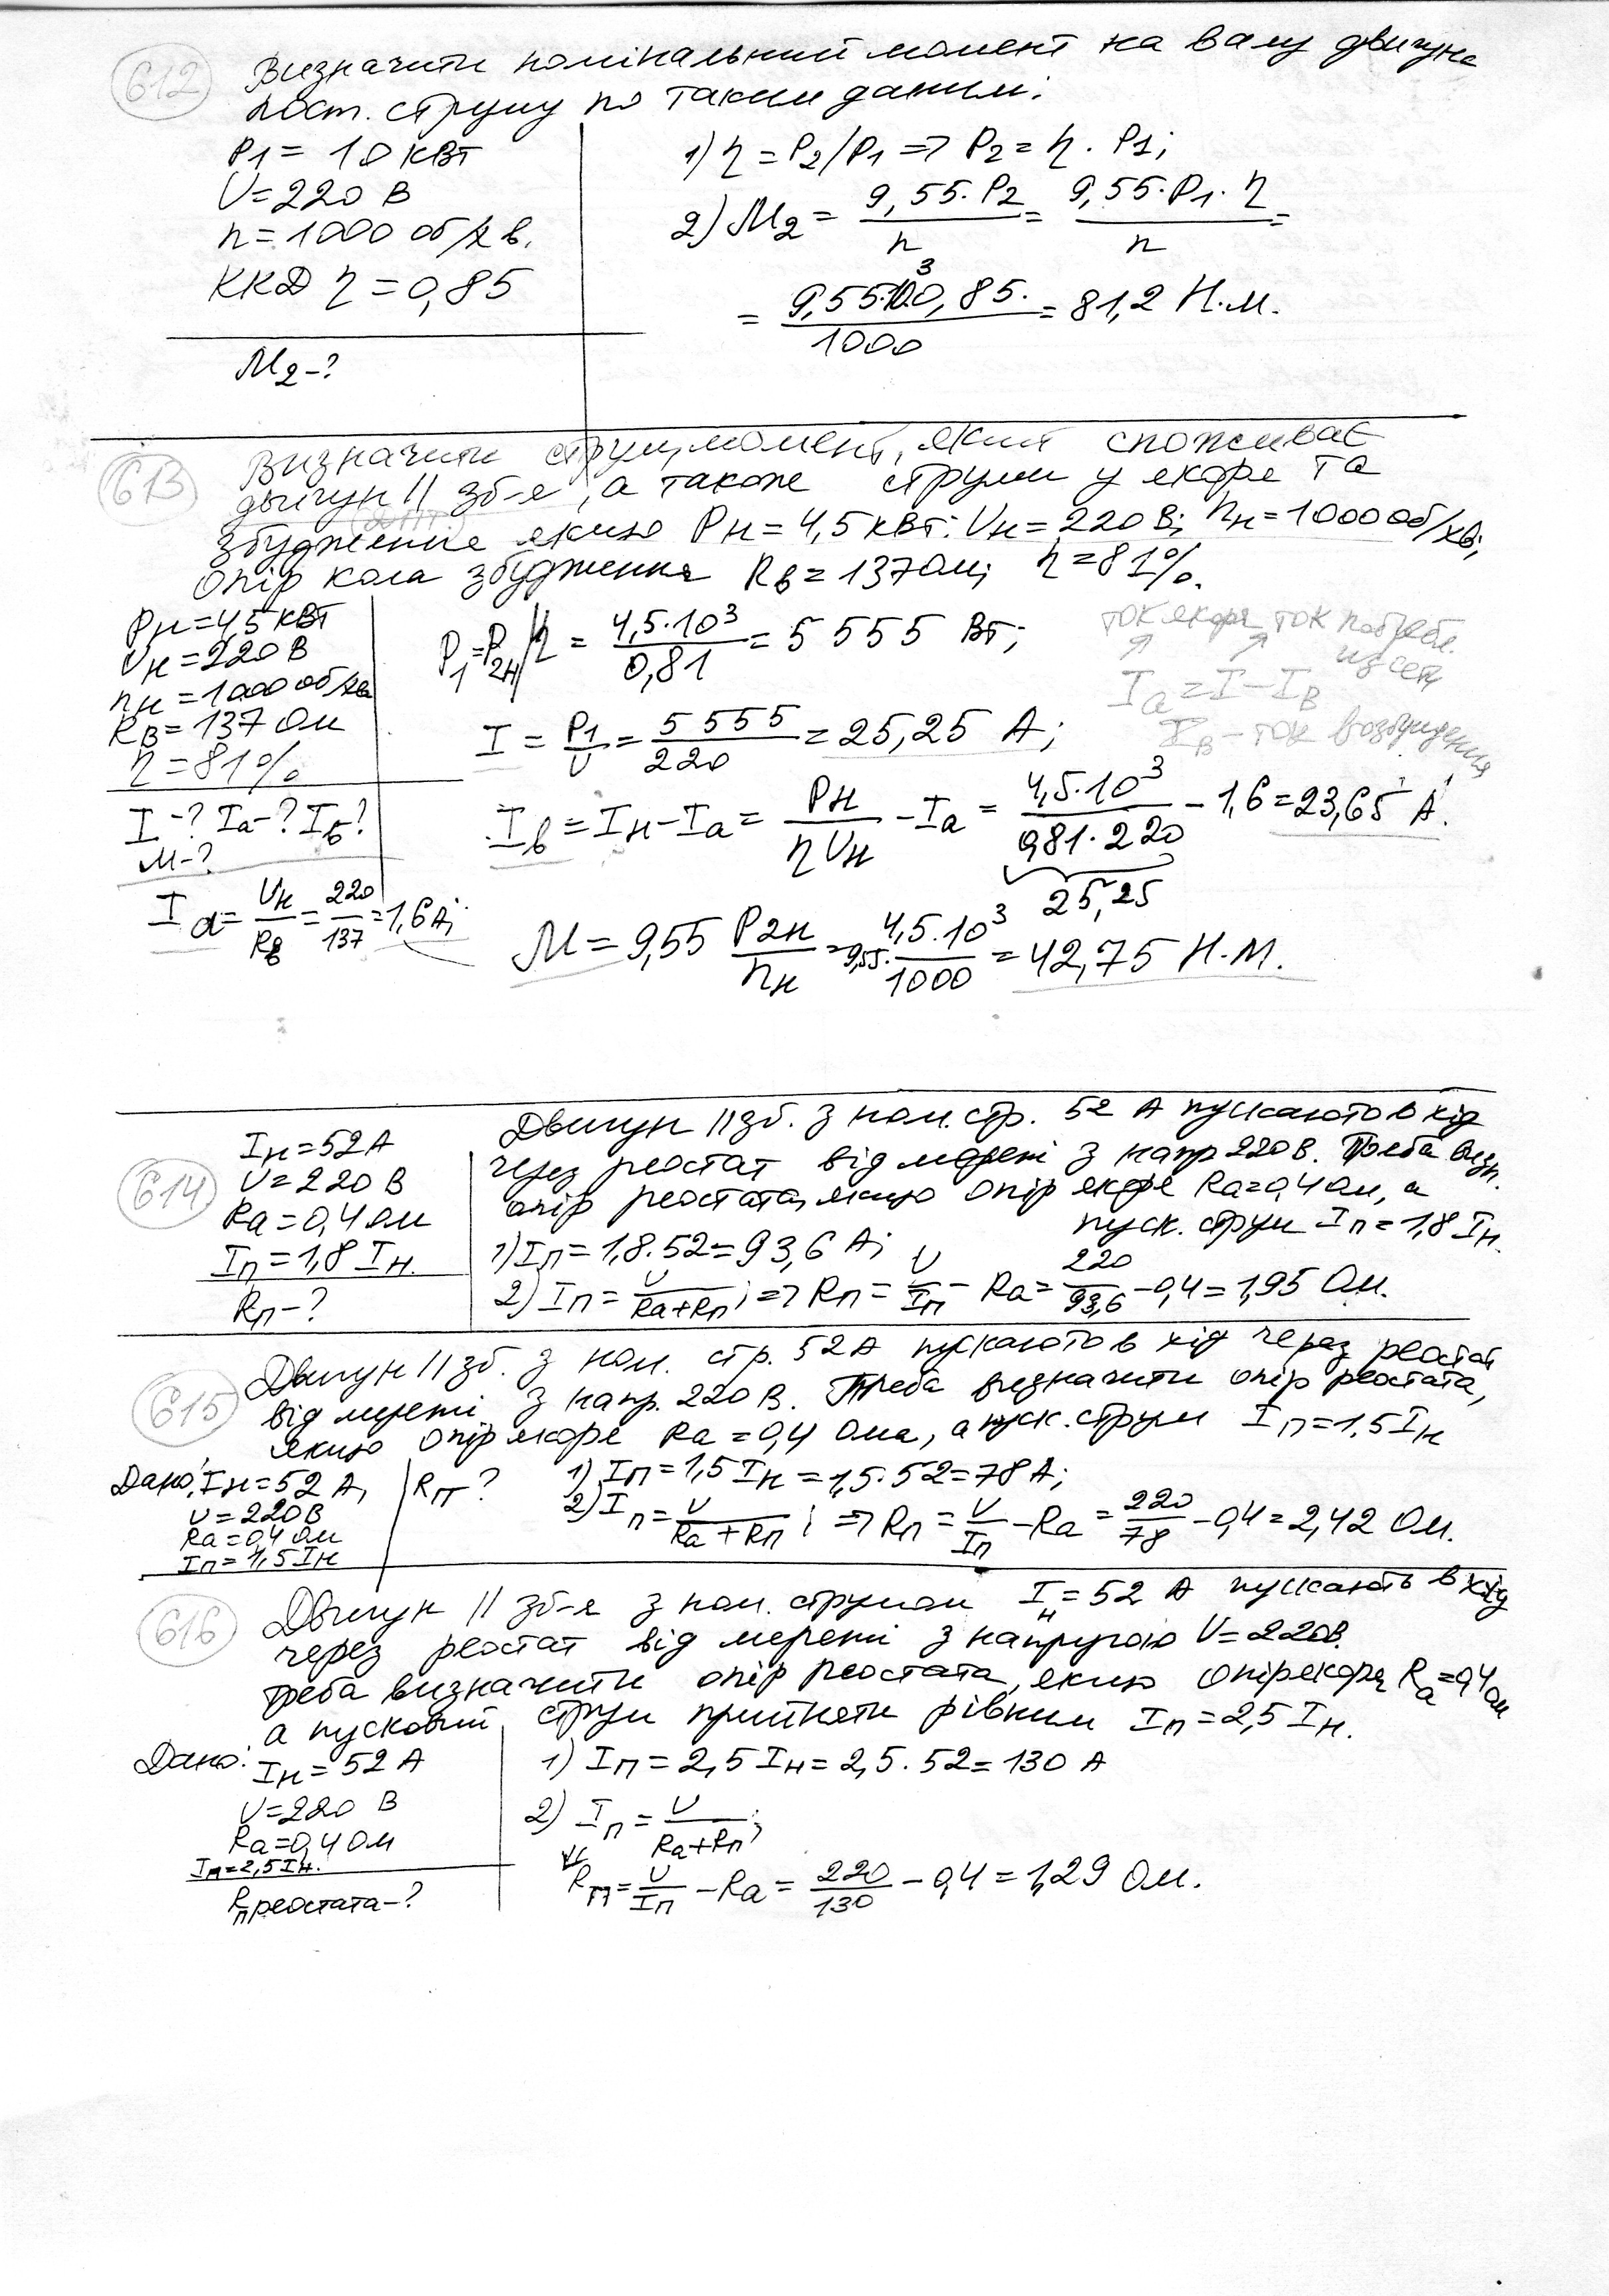 612
Визначити номінальний момент на валу двигуна
пост. струму по таким даним:
P1 = 10 кВт
U = 220 В
n = 1000 об/хв.
ККД η = 0,85
M2 - ?
1) η = P2/P1 => P2 = η · P1;
2) M2 = 9,55·P2/n = 9,55·P1·η/n =
= 9,55·10³·0,85·/1000 = 81,2 Н.м.
613
Визначити струм, момент, який споживає
двигун || зб-я, а також струми у якоре та
збудженіе якщо Pн = 4,5 кВт: Uн = 220 В; nн = 1000 об/хв;
опір кола збудження Rв = 137 Ом; η = 81%.
Pн = 4,5 кВт
Uн = 220 В
nн = 1000 об/хв
RВ = 137 Ом
η = 81%
I - ? Ia - ? Iв ?
М - ?
Ia = Uн/Rв = 220/137 = 1,6 А;
P1 = P2н/η = 4,5·10³/0,81 = 5 555 Вт;
ток якоря ток потребл.
из сети
Ia = I - IВ
IВ - ток возбуждения
I = P1/U = 5 555/220 = 25,25 А;
Iв = Iн - Ia = Pн/ηUн - Ia = 4,5·10³/0,81·220 - 1,6 = 23,65 А.
25,25
M = 9,55 P2н/nн = 9,55·4,5·10³/1000 = 42,75 Н.М.
614
Iн = 52 А
U = 220 В
Ra = 0,4 Ом
Iп = 1,8 Iн.
Rп - ?
Двигун || зб. з ном. стр. 52 А пускають в хід
через реостат від мережі з напр 220 В. Треба визн.
опір реостата, якщо опір якоре Ra = 0,4 Ом, а
пуск. струм Iп = 1,8 Iн.
1) Iп = 1,8·52 = 93,6 А;
2) Iп = U/Ra+Rп; => Rп = U/Iп - Ra = 220/93,6 - 0,4 = 1,95 Ом.
615
Двигун || зб. з ном. стр. 52 А пускають в хід через реостат
від мережі з напр. 220 В. Треба визначити опір реостата,
якщо опір якоре Ra = 0,4 Ома, а пуск. струм Iп = 1,5 Iн
Дано: Iн = 52 А,
U = 220 В
Ra = 0,4 Ом
Iп = 1,5 Iн
Rп ?
1) Iп = 1,5 Iн = 1,5·52 = 78 А;
2) Iп = U/Ra + Rп; => Rп = U/Iп - Ra = 220/78 - 0,4 = 2,42 Ом.
616
Двигун || зб-я з ном. струмом Iн = 52 А пускають в хід
через реостат від мережі з напругою U = 220В.
треба визначити опір реостата, якщо опір якоря Ra = 0,4 ом
а пусковий струм прийняти рівним Iп = 2,5 Iн.
Дано:
Iн = 52 А
U = 220 В
Ra = 0,4 Ом
Iп = 2,5 Iн.
Rп реостата - ?
1) Iп = 2,5 Iн = 2,5·52 = 130 А
2) Iп = U/Ra+Rп;
Rп = U/Iп - Ra = 220/130 - 0,4 = 1,29 Ом.